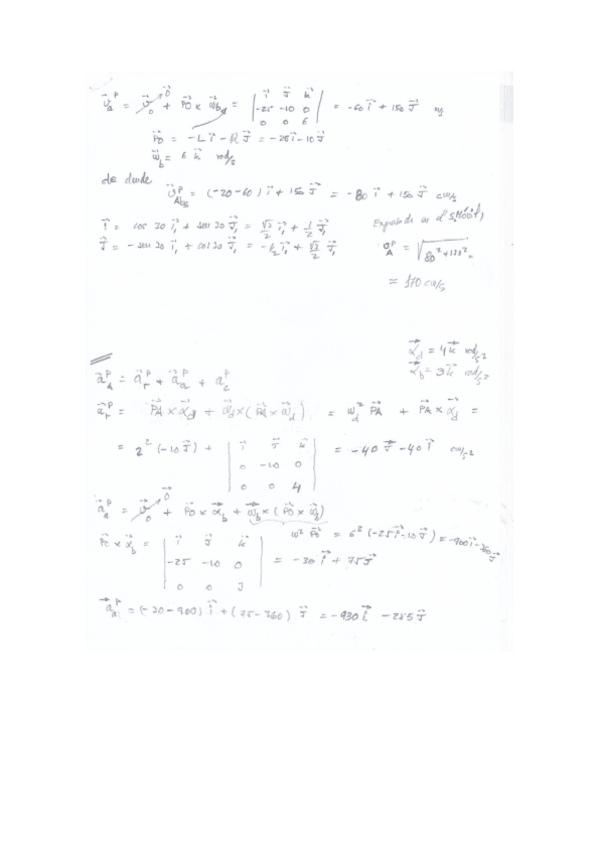 v⃗ₐᴾ = v⃗₀ + P⃗O × w⃗b = | i⃗ J⃗ k⃗ ; -25 -10 0 ; 0 0 6 | = -60 i⃗ + 150 J⃗
P⃗O = -L i⃗ - R J⃗ = -25 i⃗ - 10 J⃗
w⃗b = 6 k⃗ rad/s
de donde
v⃗ᴾ Abs = (-20-60) i⃗ + 150 J⃗ = -80 i⃗ + 150 J⃗ cm/s
i⃗ = cos 30 i⃗₁ + sen 30 J⃗₁ = √3/2 i⃗₁ + 1/2 J⃗₁
J⃗ = -sen 30 i⃗₁ + cos 30 J⃗₁ = -1/2 i⃗₁ + √3/2 J⃗₁
vᴾ A = √80² + 150²
= 170 cm/s
α⃗d = 4 k⃗ rad/s²
α⃗b = 3 k⃗ rad/s²
a⃗ᴾA = a⃗ᴾr + a⃗ᴾa + a⃗ᴾc
a⃗ᴾr = P⃗A × α⃗d + w⃗d × (P⃗A × w⃗d) = w²d P⃗A + P⃗A × α⃗d =
= 2² (-10 J⃗) + | i⃗ J⃗ k⃗ ; 0 -10 0 ; 0 0 4 | = -40 J⃗ - 40 i⃗ cm/s²
a⃗ᴾa = v⃗₀ + P⃗O × α⃗b + w⃗b × (P⃗O × w⃗b)
w² P⃗O = 6² (-25 i⃗ - 10 J⃗) = -900 i⃗ - 360 J⃗
P⃗O × α⃗b = | i⃗ J⃗ k⃗ ; -25 -10 0 ; 0 0 3 | = -30 i⃗ + 75 J⃗
a⃗ᴾa = (-30-900) i⃗ + (75-360) J⃗ = -930 i⃗ - 285 J⃗